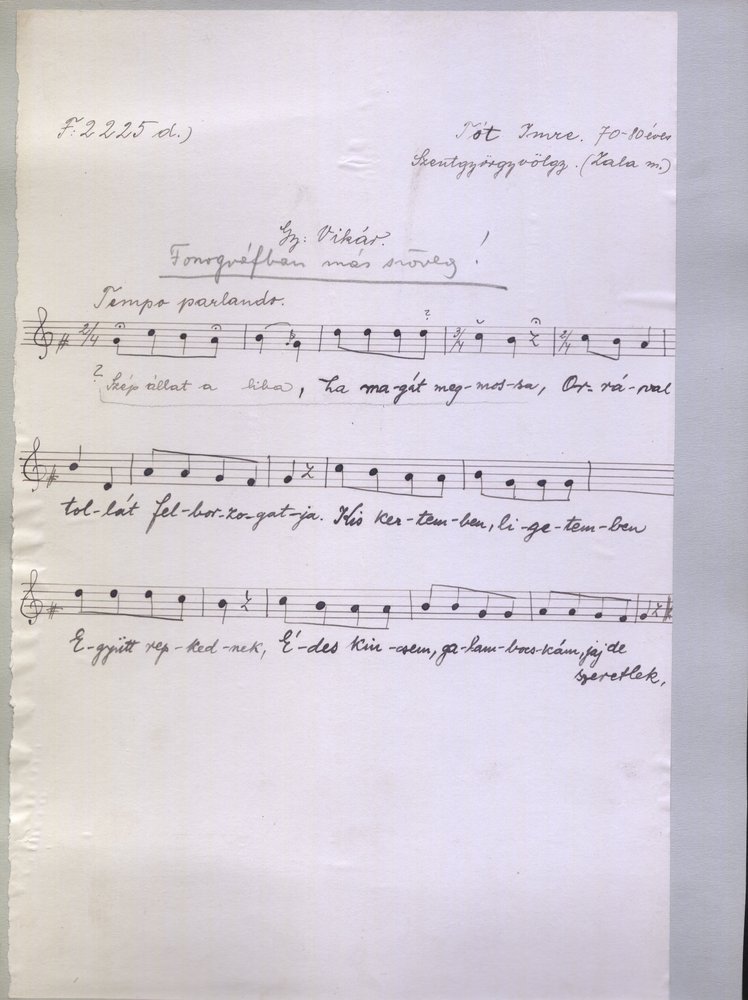 F: 2225 d.)
Tót Imre. 70-80 éves
Szentgyörgyvölgy. (Zala m.)
Gy: Vikár.
Fonográfban más szöveg!
Tempo parlando.
?
2/4 3/4 2/4
? Szép állat a liba, ha ma-gát meg-mos-sa, Or-rá-val
tol-lát fel-bor-zo-gat-ja. Kis ker-tem-ben, li-ge-tem-ben
E-gyütt rep-ked-nek, É-des kin-csem, ga-lam-bocs-kám, jaj de
szeretlek,